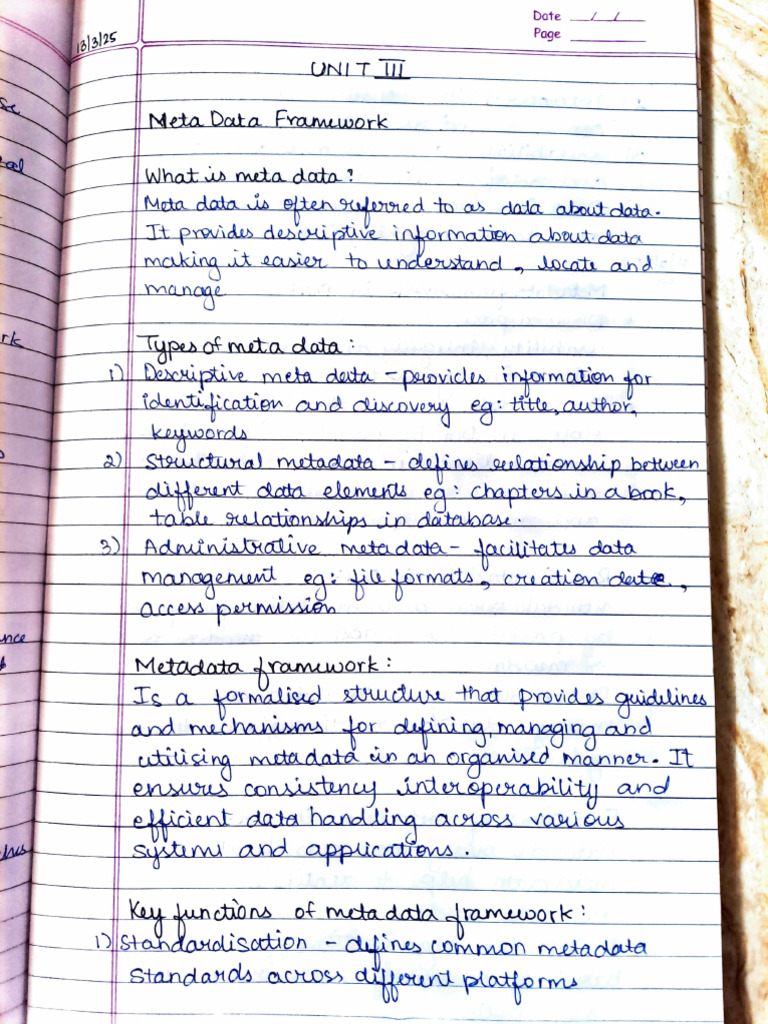 Date / /
Page
13/3/25
UNIT III
Meta Data Framework
What is meta data?
Meta data is often referred to as data about data.
It provides descriptive information about data
making it easier to understand, locate and
manage
Types of meta data:
1) Descriptive meta data - provides information for
identification and discovery eg: title, author,
keywords
2) Structural metadata - defines relationship between
different data elements eg: chapters in a book,
table relationships in database.
3) Administrative metadata - facilitates data
management eg: file formats, creation date,
access permission
Metadata framework:
Is a formalised structure that provides guidelines
and mechanisms for defining, managing and
utilising metadata in an organised manner. It
ensures consistency interoperability and
efficient data handling across various
systems and applications.
Key functions of metadata framework:
1) Standardisation - defines common metadata
standards across different platforms